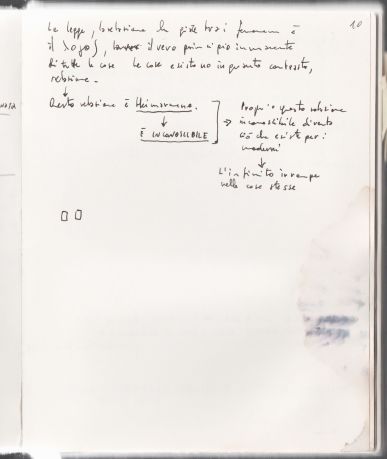 10
La legge, la relazione che esiste tra i fenomeni è
il λογος, il vero principio immanente
di tutte le cose. Le cose esistono in quanto contrasto,
relazione.
↓
Questa relazione è
↓
È INCONOSCIBILE
→ Proprio questa relazione
inconoscibile diventa
ciò che esiste per i
moderni
↓
L'infinito irrompe
nelle cose stesse